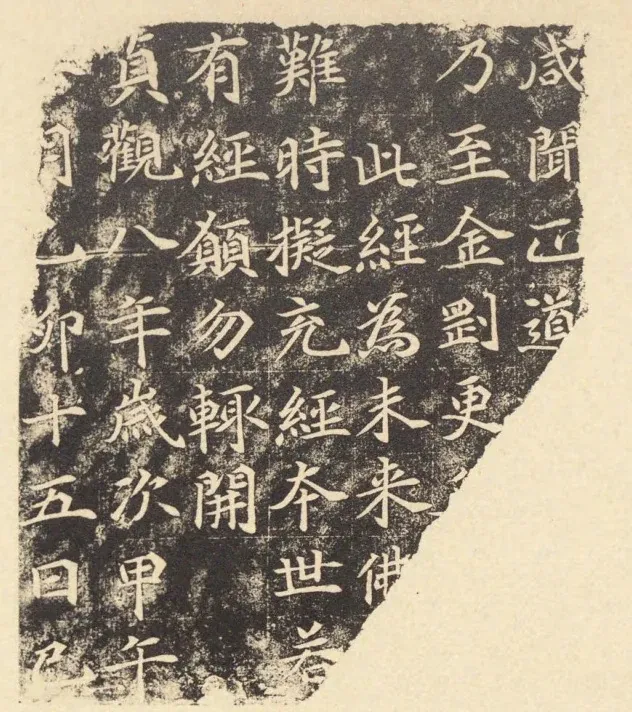 咸聞正道
乃至金剛更
此經為未来佛
難時擬充經本世若
有經願勿輒開
貞觀八年歲次甲午
月乙卯十五日己